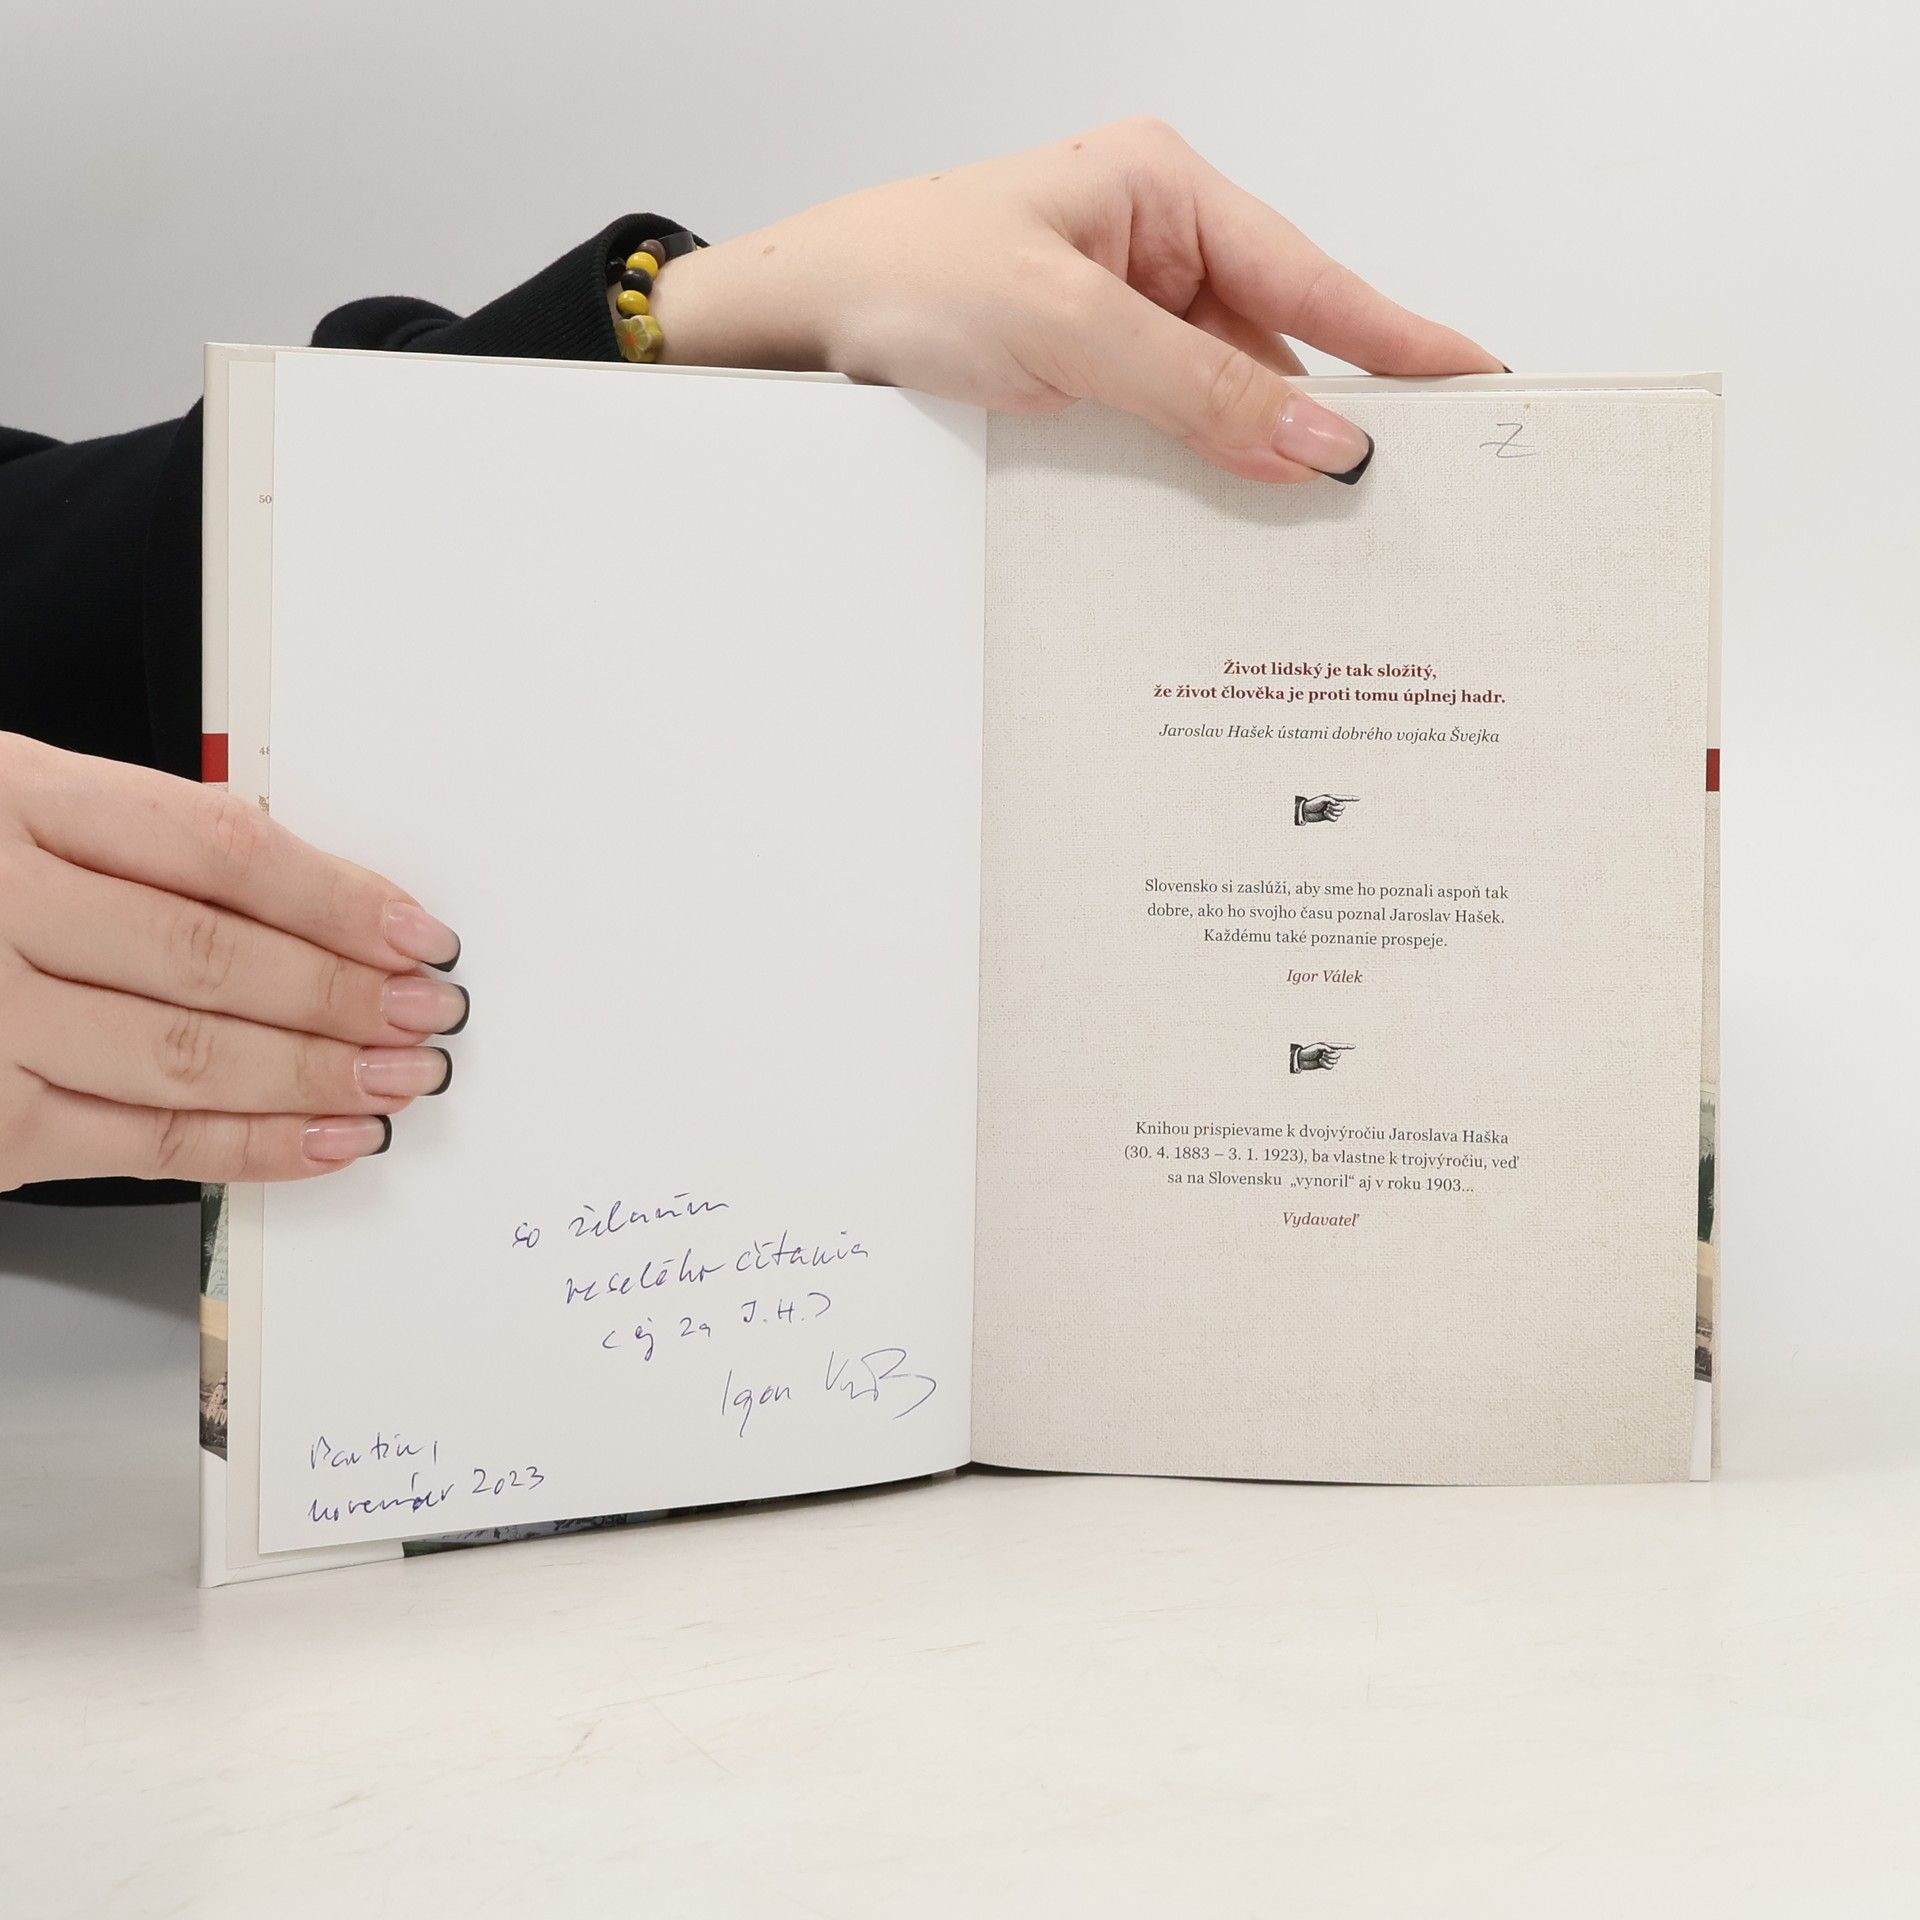 50
48
so želaním
veselého čítania
(aj za J.H.)
Igor Válek
Martin,
november 2023
Z
Život lidský je tak složitý,
že život člověka je proti tomu úplnej hadr.
Jaroslav Hašek ústami dobrého vojaka Švejka
Slovensko si zaslúži, aby sme ho poznali aspoň tak
dobre, ako ho svojho času poznal Jaroslav Hašek.
Každému také poznanie prospeje.
Igor Válek
Knihou prispievame k dvojvýročiu Jaroslava Haška
(30. 4. 1883 – 3. 1. 1923), ba vlastne k trojvýročiu, veď
sa na Slovensku „vynoril“ aj v roku 1903...
Vydavateľ